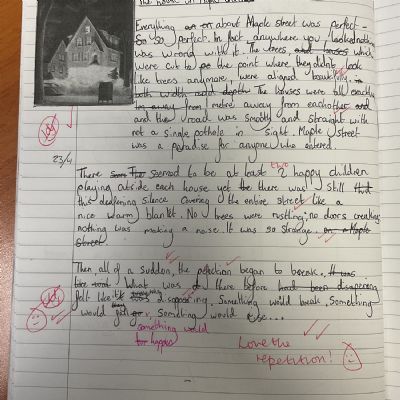 The house on Maple street
Everything about Maple street was perfect -
So perfect. In fact anywhere you looked nothing
was wrong with it. The trees, which
were cut to the point where they didn't look
like trees anymore, were aligned beautifully.
The houses were all exactly
metre away from eachother
and the road was smooth and straight with
not a single pothole in sight. Maple street
was a paradise for anyone who entered.
23/4
There seemed to be at least two happy children
playing outside each house yet there was still
this deafening silence covering the entire street like a
nice warm blanket. No trees were rustling; no doors creaking
nothing was making a noise. It was so strange.
Then all of a sudden, the perfection began to break.
What was there before
felt like it was disappearing. Something would break, something
would go, something would else...
something would
happen
Love the
repetition!